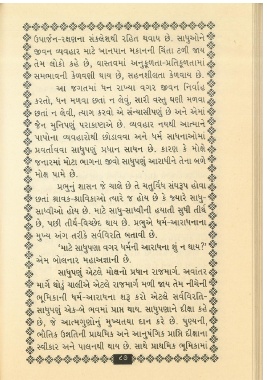 ઉપાર્જન-રક્ષણના સંક્લેશથી રહિત થવાય છે. સાધુઓને
જીવન વ્યવહાર માટે ખાનપાન મકાનની ચિંતા ટળી જાય
તેમ લોકો કહે છે, વાસ્તવમાં અનુકૂળતા-પ્રતિકૂળતામાં
સમભાવની કેળવણી થાય છે, સહનશીલતા કેળવાય છે.
આ જગતમાં ધન રાખ્યા વગર જીવન નિર્વાહ
કરતો, ધન મળવા છતાં ન લેવું, સારી વસ્તુ ઘણી મળવા
છતાં ન લેવી, ત્યાગ કરવો એ સંન્યાસીપણું છે અને એમાં
જૈન મુનિપણું પરાકાષ્ઠાએ છે. વ્યવહાર નયથી આત્માને
પાપોના વ્યવહારોથી છોડાવવા અને ધર્મ સાધનાઓમાં
પ્રવર્તાવવા સાધુપણું પ્રધાન સાધન છે. કારણ કે મોક્ષે
જનારમાં મોટા ભાગના જીવો સાધુપણું આરાધીને તેના બળે
મોક્ષ પામે છે.
પ્રભુનું શાસન જે ચાલે છે તે ચતુર્વિધ સંઘરૂપ હોવા
છતાં શ્રાવક-શ્રાવિકાઓ ત્યારે જ હોય છે કે જ્યારે સાધુ-
સાધ્વીઓ હોય છે. માટે સાધુ-સાધ્વીની હયાતી સુધી તીર્થ
છે, પછી તીર્થ-વિચ્છેદ થાય છે. પ્રભુએ ધર્મ-આરાધનાના
મુખ્ય અંગ તરીકે સર્વવિરતિ બતાવી છે.
'માટે સાધુપણા વગર ધર્મની આરાધના શું ન થાય?'
એમ બોલનાર મહાઅજ્ઞાની છે.
સાધુપણું એટલે મોક્ષનો પ્રધાન રાજમાર્ગ. અવાંતર
માર્ગે થોડું ચાલીએ એટલે રાજમાર્ગ મળી જાય તેમ નીચેની
ભૂમિકાની ધર્મ-આરાધના શરૂ કરો એટલે સર્વવિરતિ-
સાધુપણું એક-બે ભવમાં પ્રાપ્ત થાય. સાધુપણાને દીક્ષા કહે
છે, જે આત્મગુણોનું મુખ્યતયા દાન કરે છે. પુણ્યની,
ભૌતિક ઉન્નતિની પ્રાથમિક અને આનુષંગિક પ્રાપ્તિ દીક્ષાના
સ્વીકાર અને પાલનથી થાય છે. સાથે પ્રાથમિક ભૂમિકામાં